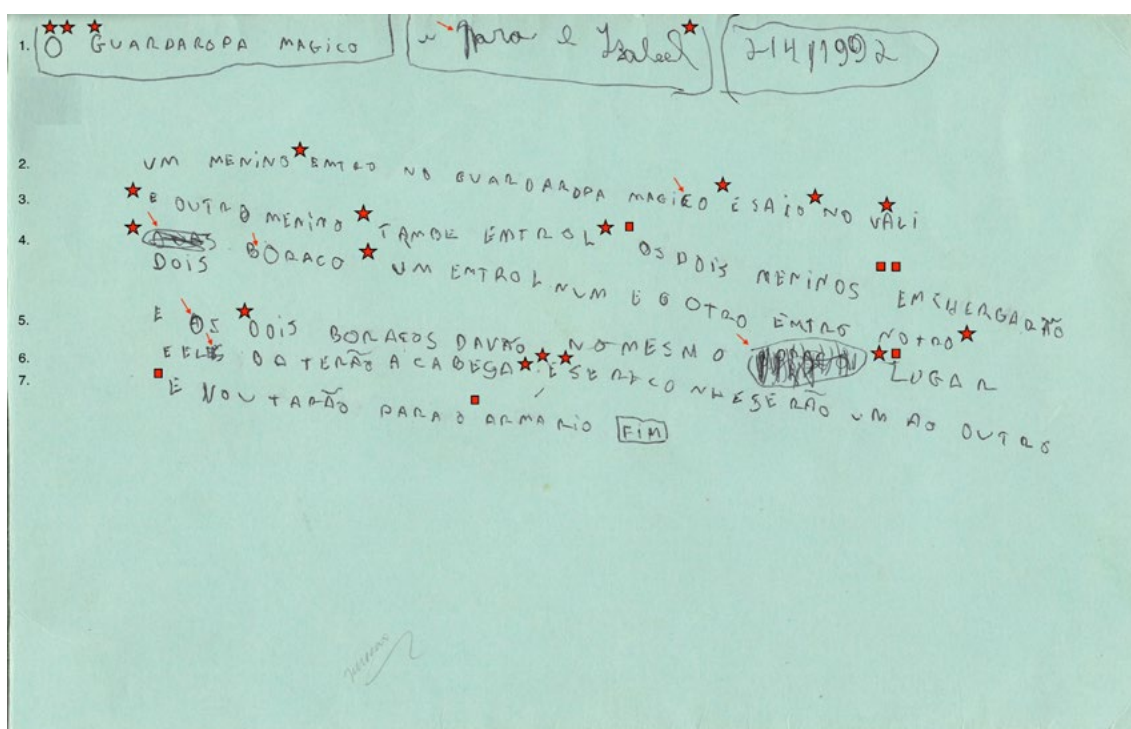 1. O GUARDAROPA MAGICO Nara e Isabel 2/4/1992
2. UM MENINO EMTRO NO GUARDAROPA MAGICO E SAIO NO VALI
3. E OUTRO MENINO TAMBE EMTROL OS DOIS MENINOS EMCHERGARÃO
4. DOIS BORACO UM EMTROL NUM E O OTRO EMTRO NOTRO
5. E OS DOIS BORACOS DAVÃO NO MESMO LUGAR
6. E ELES DA TERÃO A CABEÇA E SE RECONHESERÃO UM AO OUTRO
7. E VOUTARÃO PARA O ARMARIO FIM